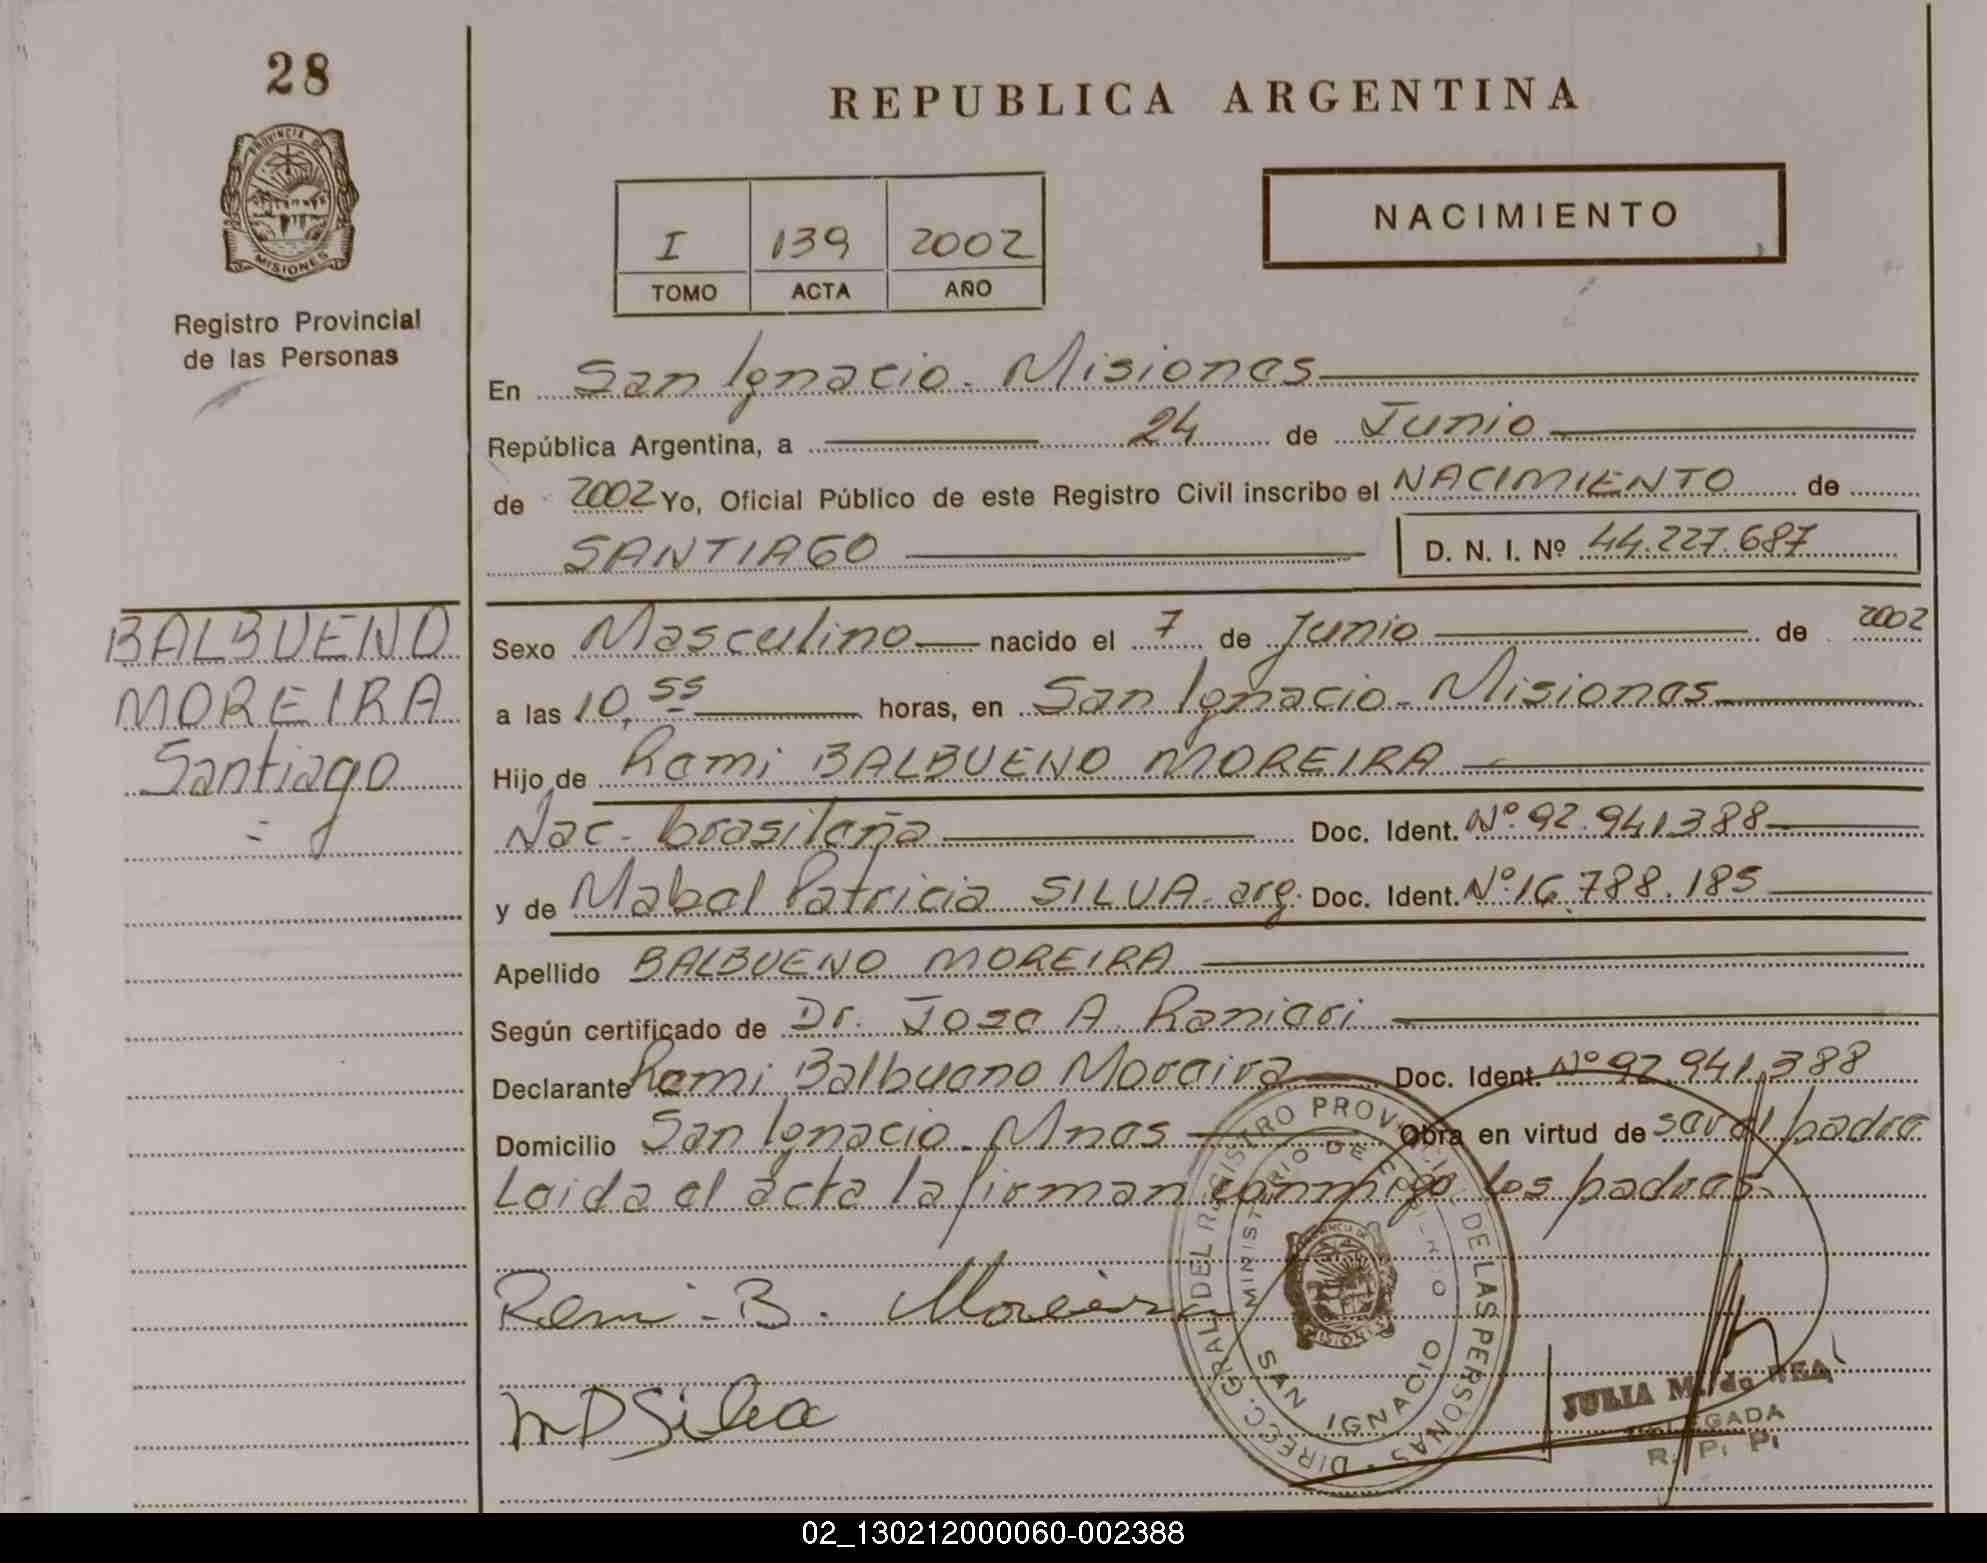 28
PROVINCIA DE
MISIONES
Registro Provincial
de las Personas
REPUBLICA ARGENTINA
I 139 2002
TOMO ACTA AÑO
NACIMIENTO
En San Ignacio. Misiones
República Argentina, a 24 de Junio
de 2002 Yo, Oficial Público de este Registro Civil inscribo el NACIMIENTO de
SANTIAGO D. N. I. Nº 44.227.687
BALBUENO
MOREIRA
Santiago
Sexo Masculino nacido el 7 de Junio de 2002
a las 10,55 horas, en San Ignacio - Misiones
Hijo de Remi BALBUENO MOREIRA
Nac - brasileña Doc. Ident. Nº 92.941.388
y de Mabel Patricia SILVA - arg. Doc. Ident. Nº 16.788.185
Apellido BALBUENO MOREIRA
Según certificado de Dr. Jose A. Ranieri
Declarante Remi Balbueno Moreira Doc. Ident. Nº 92.941.388
Domicilio San Ignacio - Mnes Obra en virtud de ser el padre
Leida el acta la firman conmigo los padres.
Remi - B. Moreira
M P Silva
DIRECC. GRAL. DEL REGISTRO PROVINCIAL DE LAS PERSONAS
MINISTERIO DE GOBIERNO
SAN IGNACIO
JULIA M. de
DELEGADA
R. P. P.
02_130212000060-002388